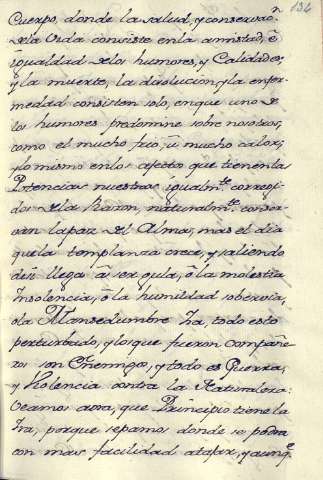 134
Cuerpo, donde la salud, y conservaōn
de la Vida consiste en la amistad, è
igualdad de los humores, y Calidades,
y la muerte, la disolucion, y la enfer
medad consisten solo, en que uno de
los humores predomine sobre nosotros,
como el mucho frio, ù mucho calor;
y lo mismo en los afectos que tienen las
Potencias nuestras igualmte. corregi
dos de la Razon, naturalmte. conser
van la paz del Alma, mas el dia
que la templanza crece, y saliendo
de si llega à ser gula, ò la molestia
Insolencia, ò la humildad sobervia,
ò la Mansedumbre Ira, todo esto
perturbado, y los que fueron compañe
ros son Enemigos, y todo es Guerra,
y Violencia contra la Naturaleza.
Veamos aora, que Principio tiene la
Ira, porque sepamos donde se podra
con mas facilidad atajar, y aunqe.